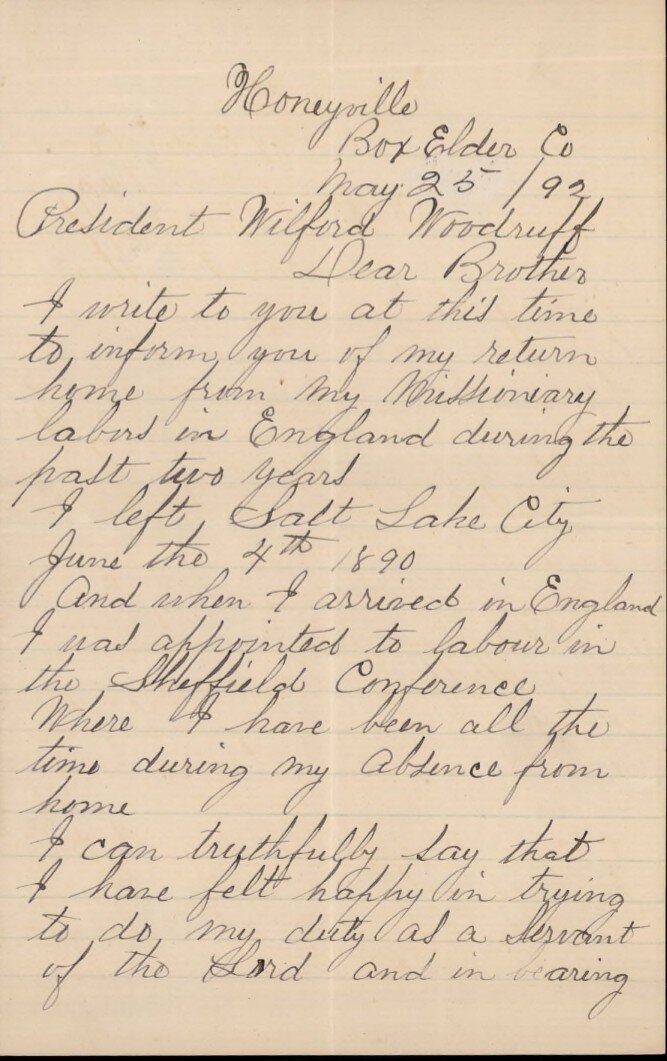 Honeyville
Box Elder Co
May 25 /92
President Wilford Woodruff
Dear Brother
I write to you at this time
to inform you of my return
home from my Missioniary
labors in England during the
past two years
I left Salt Lake City
June the 4th 1890
And when I arrived in England
I was appointed to labour in
the Sheffield Conference
Where I have been all the
time during my absence from
home
I can truthfully say that
I have felt happy in trying
to do my duty as a Servant
of the Lord and in bearing